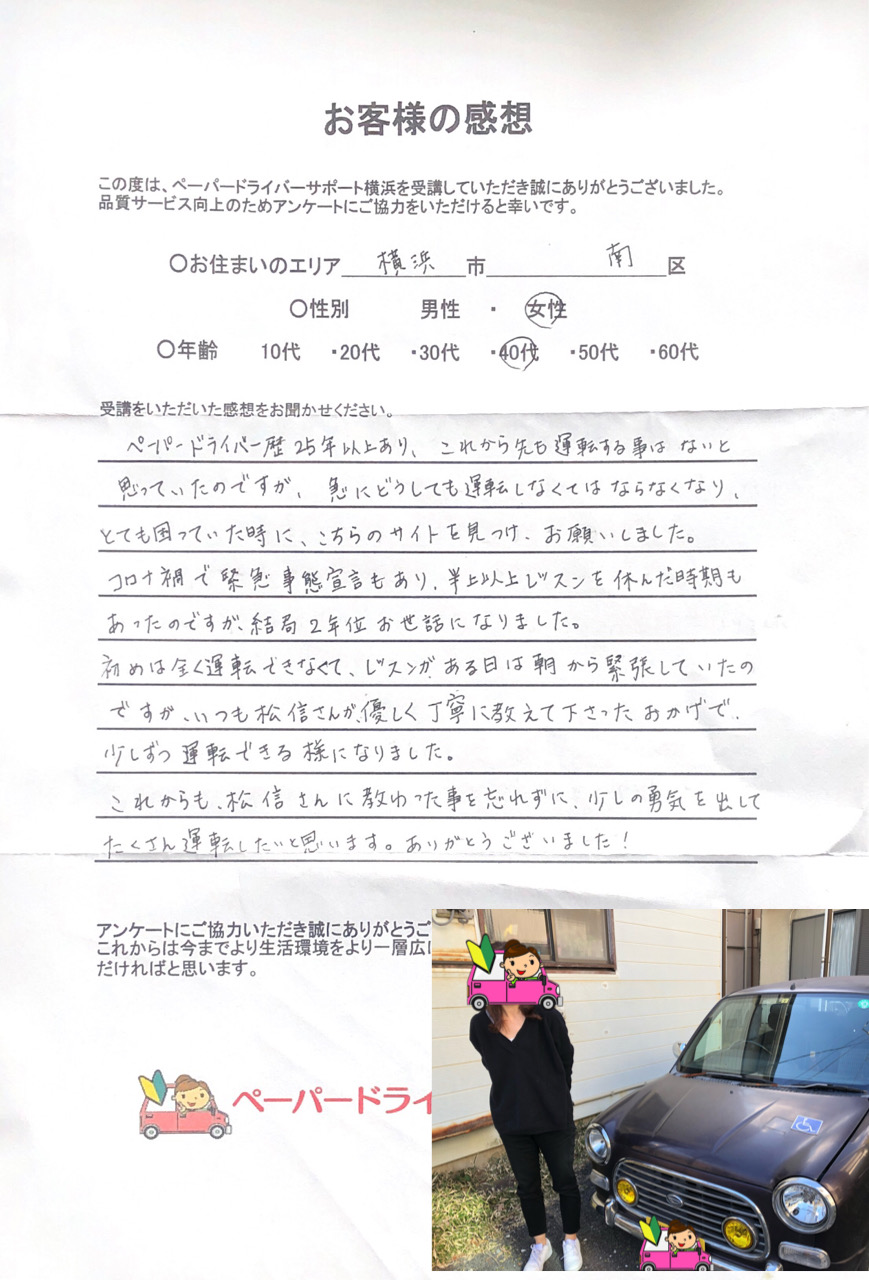 お客様の感想
この度は、ペーパードライバーサポート横浜を受講していただき誠にありがとうございました。
品質サービス向上のためアンケートにご協力をいただけると幸いです。
〇お住まいのエリア 横浜 市 南 区
〇性別 男性 ・ 女性
〇年齢 10代 ・20代 ・30代 ・40代 ・50代 ・60代
受講をいただいた感想をお聞かせください。
ペーパードライバー歴25年以上あり、これから先も運転する事はないと
思っていたのですが、急にどうしても運転しなくてはならなくなり、
とても困っていた時に、こちらのサイトを見つけ、お願いしました。
コロナ禍で緊急事態宣言もあり、半年以上レッスンを休んだ時期も
あったのですが、結局2年位お世話になりました。
初めは全く運転できなくて、レッスンがある日は朝から緊張していたの
ですが、いつも松信さんが優しく丁寧に教えて下さったおかげで、
少しずつ運転できる様になりました。
これからも、松信さんに教わった事を忘れずに、少しの勇気を出して
たくさん運転したいと思います。ありがとうございました!
アンケートにご協力いただき誠にありがとうご
これからは今までより生活環境をより一層広
だければと思います。
ペーパードライ